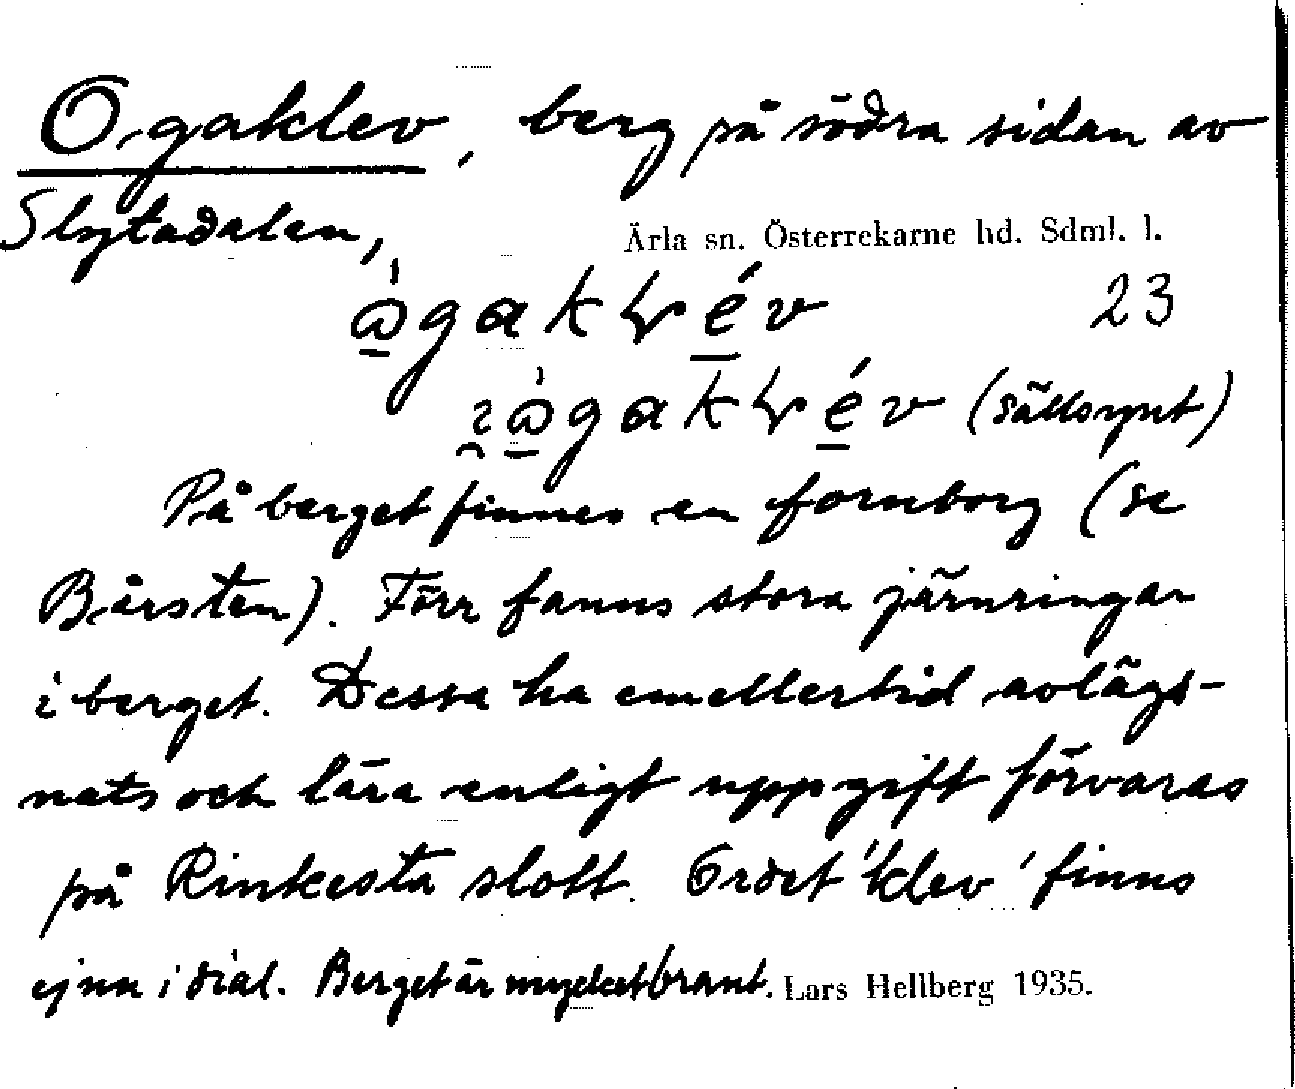 Ogaklev, berg på södra sidan av
Slytadalen,
Ärla sn. Österrekarne hd. Sdml. l.
23
(sällsynt)
På berget finnes en fornborg (se
Bårsten). Förr fanns stora järnringar
i berget. Dessa ha emellertid avlägs-
nats och lära enligt uppgift förvaras
på Rinkesta slott. Ordet 'klev' finns
ej nu i dial. Berget är mycket brant. Lars Hellberg 1935.